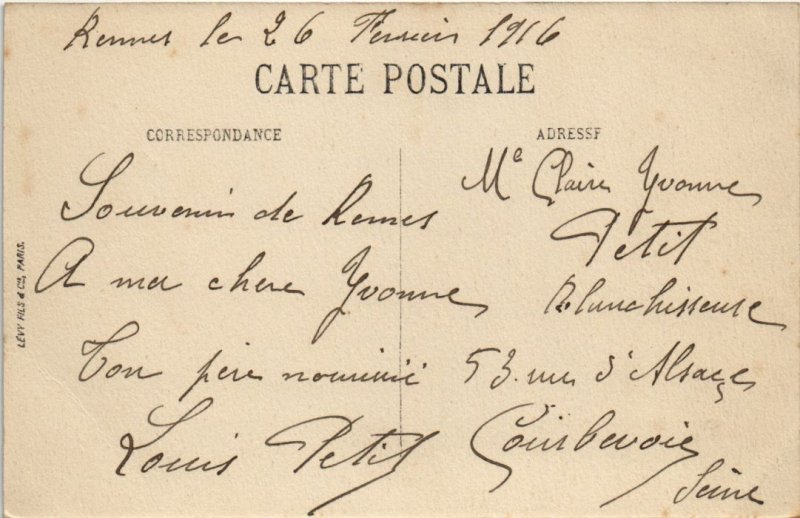 Rennes le 26 Fevrier 1916
CARTE POSTALE
CORRESPONDANCE
ADRESSE
Souvenir de Rennes
A ma chere Yvonne
Ton père
Louis Petit
Me Claire Yvonne
Petit
Blanchisseuse
53 rue d'Alsace
Courbevoie
Seine
LÉVY FILS & Cie, PARIS.